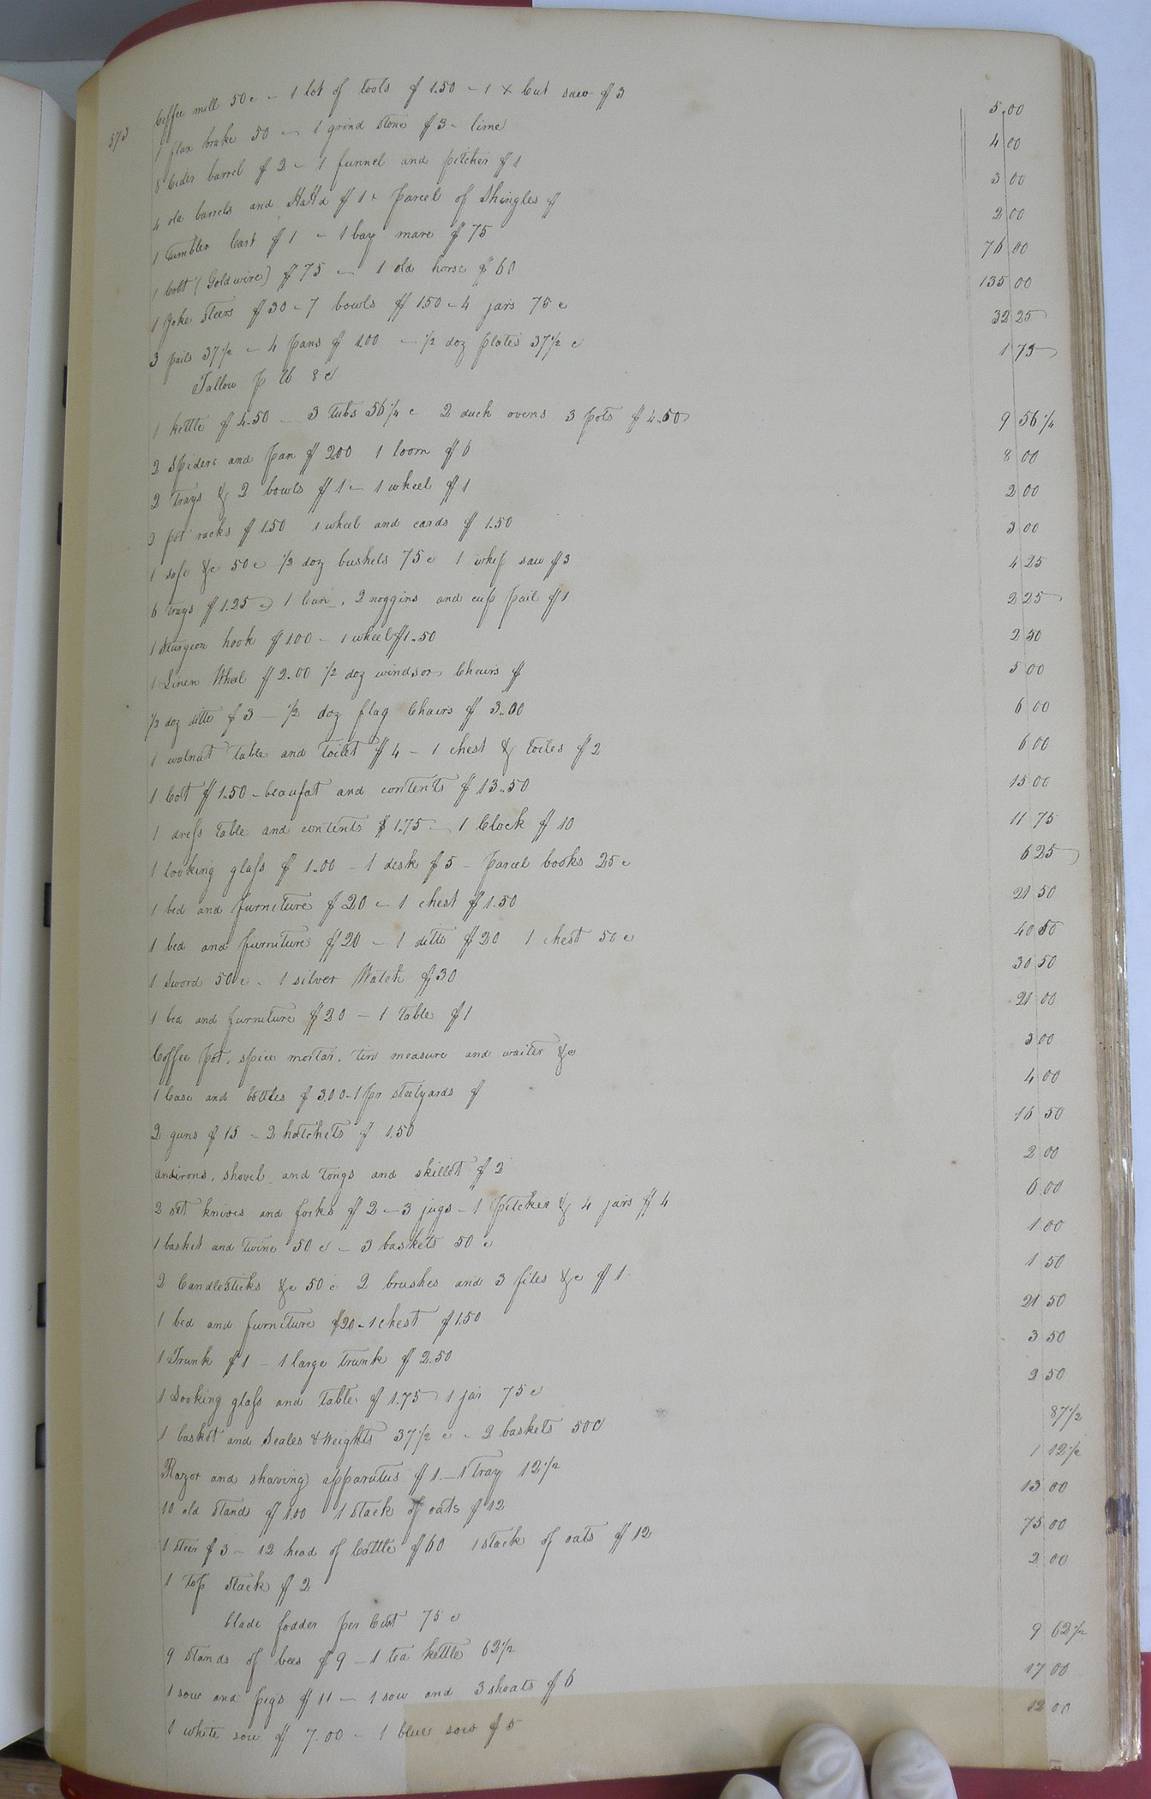 573 Coffee mill 50c - 1 lot of tools $ 1.50 - 1 x Cut saw $ 3 5.00
1 flax brake 50 - 1 grind stone $ 3 - lime 4 00
8 Cider barrel $ 2 - 1 funnel and pitcher $ 1 3 00
4 old barrels and HaHd $ 1 & Parcel of Shingles $ 2 00
1 Tumbler Cart $ 1 - 1 bay mare $ 75 76 00
1 Colt (Goldwire) $ 75 - 1 old horse $ 60 135 00
1 Yoke Steers $ 30 - 7 bowls $ 1.50 - 4 jars 75 c 32 25
3 pails 37½ - 4 Pans $ 1.00 - ½ doz plates 37½ c 1 75
Tallow p lb 8c
1 kettle $ 4.50 - 3 tubs 56¼ c 2 duch ovens 3 pots $ 4.50 9 56¼
2 Spiders and Pan $ 2.00 1 loom $ 6 8 00
2 Trays & 2 bowls $ 1 - 1 wheel $ 1 2 00
2 pot racks $ 1.50 1 wheel and cards $ 1.50 3 00
1 safe &c 50 c ½ doz bushels 75 c 1 whip saw $ 3 4 25
6 trays $ 1.25 - 1 Can, 2 noggins and cup pail $ 1 2 25
1 Sturgeon hook $ 1.00 - 1 wheel $ 1.50 2 50
1 Linen Wheel $ 2.00 ½ doz windsor Chairs $ 5 00
½ doz ditto $ 3 - ½ doz flag Chairs $ 3.00 6 00
1 walnut table and toilet $ 4 - 1 chest & toiles $ 2 6 00
1 Cot $ 1.50 - beaufat and contents $ 13.50 15 00
1 dress table and contents $ 1.75 - 1 Clock $ 10 11 75
1 looking glass $ 1.00 - 1 desk $ 5 - Parcel books 25 c 6 25
1 bed and furniture $ 20 - 1 chest $ 1.50 21 50
1 bed and furniture $ 20 - 1 ditto $ 20 1 chest 50 c 40 50
1 Sword 50 c - 1 silver Watch $ 30 30 50
1 bed and furniture $ 20 - 1 table $ 1 21 00
Coffee Pot, spice mortar, tin measure and waiter &c 3 00
1 Case and bottles $ 3.00 - 1 pr steelyards $ 4 00
2 guns $ 15 - 2 hatchets $ 1.50 16 50
andirons, shovel and tongs and skillet $ 2 2 00
2 set knives and forks $ 2 - 3 jugs - 1 pitcher & 4 jars $ 4 6 00
1 basket and twine 50 c - 3 baskets 50 c 1 00
2 Candlesticks &c 50 c 2 brushes and 3 files &c $ 1 1 50
1 bed and furniture $20 - 1 chest $ 1.50 21 50
1 Trunk $ 1 - 1 large trunk $ 2.50 3 50
1 Looking glass and table $ 1.75 1 jar 75 c 2 50
1 basket and Scales & Weights 37½ c - 2 baskets 50c 87½
Razor and shaving apparatus $ 1 - 1 tray 12½ 1 12½
10 old stands $ 1.00 1 stack of oats $ 12 13 00
1 steer $ 3 - 12 head of Cattle $ 60 1 stack of oats $ 12 75 00
1 top stack $ 2 2 00
blade fodder per Cwt 75 c
9 stands of bees $ 9 - 1 tea kettle 62½ 9 62½
1 sow and pigs $ 11 - 1 sow and 3 shoats $ 6 17 00
1 white sow $ 7.00 - 1 blue sow $ 5 12 00